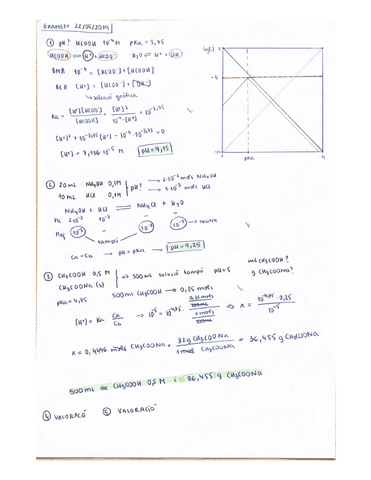 EXAMEN 22/05/2014
① pH? HCOOH 10⁻⁴ M pKa = 3,75
HCOOH ⇌ H⁺ + HCOO⁻ H₂O ⇌ H⁺ + OH⁻
BMA 10⁻⁴ = [HCOO⁻] + [HCOOH]
BCA [H⁺] = [HCOO⁻] + [OH⁻]
solució gràfica
Ka = [H⁺][HCOO⁻] / [HCOOH] = [H⁺]² / 10⁻⁴-[H⁺] = 10⁻³,⁷⁵
[H⁺]² + 10⁻³,⁷⁵ [H⁺] - 10⁻⁴ · 10⁻³,⁷⁵ = 0
[H⁺] = 7,136·10⁻⁵ M pH = 4,15
log C
-4
pKa
② 20 mL NH₄OH 0,1M
10 mL HCl 0,1M
pH?
2·10⁻³ mols NH₄OH
1·10⁻³ mols HCl
NH₄OH + HCl ⇌ NH₄Cl + H₂O
ni 2·10⁻³ 10⁻³ - -
neq 10⁻³ - 10⁻³ 10⁻³ → neutre
tampó
Ca = Cb → pH = pKa → pH = 9,25
③ CH₃COOH 0,5 M
CH₃COONa (s)
⇒ 500 mL solució tampó pH = 5
mL CH₃COOH?
g CH₃COONa?
pKa = 4,75
500 mL CH₃COOH → 0,25 mols
[H⁺] = Ka Ca/Cb → 10⁻⁵ = 10⁻⁴,⁷⁵ · (0,25 mols / 500 mL) / (x mols / 500 mL) ⇒ x = 10⁻⁴,⁷⁵ · 0,25 / 10⁻⁵
x = 0,4446 mols CH₃COONa × 82 g CH₃COONa / 1 mol CH₃COONa = 36,455 g CH₃COONa
500 mL de CH₃COOH 0,5 M i 36,455 g CH₃COONa
④ VALORACIÓ ⑤ VALORACIÓ